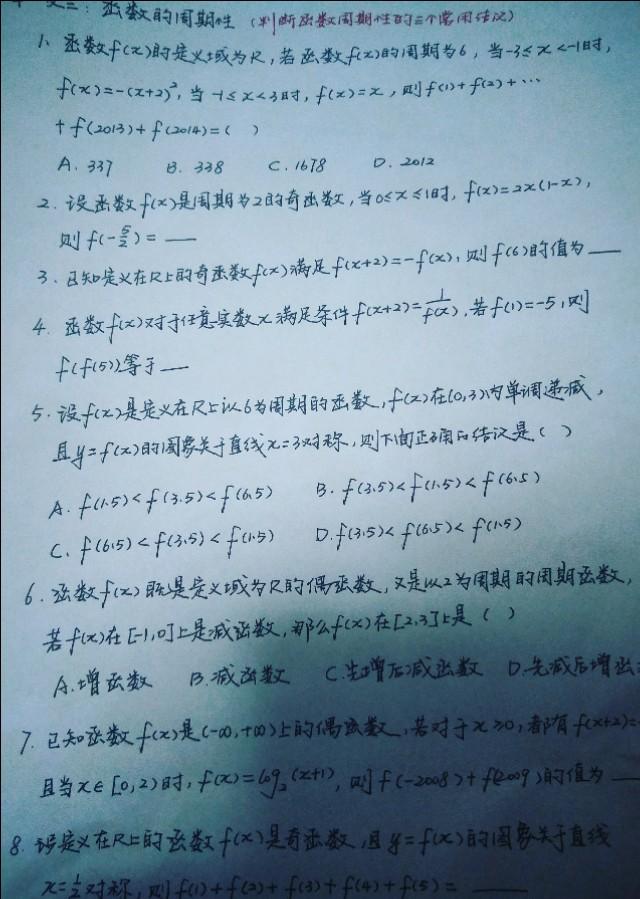 二：函数的周期性（判断函数周期性的三个常用结论）
1、函数f(x)的定义域为R，若函数f(x)的周期为6，当-3≤x<-1时，
f(x)=-(x+2)²，当-1≤x<3时，f(x)=x，则f(1)+f(2)+…
+f(2013)+f(2014)=(  )
A. 337  B. 338  C. 1678  D. 2012
2. 设函数f(x)是周期为2的奇函数，当0≤x≤1时，f(x)=2x(1-x)，
则f(-5/2)=___
3. 已知定义在R上的奇函数f(x)满足f(x+2)=-f(x)，则f(6)的值为___
4. 函数f(x)对于任意实数x满足条件f(x+2)=1/f(x)，若f(1)=-5，则
f(f(5))等于___
5. 设f(x)是定义在R上以6为周期的函数，f(x)在(0,3)内单调递减，
且y=f(x)的图象关于直线x=3对称，则下面正确的结论是(  )
A. f(1.5)<f(3.5)<f(6.5)  B. f(3.5)<f(1.5)<f(6.5)
C. f(6.5)<f(3.5)<f(1.5)  D. f(3.5)<f(6.5)<f(1.5)
6. 函数f(x)既是定义域为R的偶函数，又是以2为周期的周期函数，
若f(x)在[-1,0]上是减函数，那么f(x)在[2,3]上是(  )
A. 增函数  B. 减函数  C. 先增后减函数  D. 先减后增函
7. 已知函数f(x)是(-∞,+∞)上的偶函数，若对于x≥0，都有f(x+2)=
且当x∈[0,2)时，f(x)=log₂(x+1)，则f(-2008)+f(2009)的值为___
8. 设定义在R上的函数f(x)是奇函数，且y=f(x)的图象关于直线
x=1/2对称，则f(1)+f(2)+f(3)+f(4)+f(5)=___